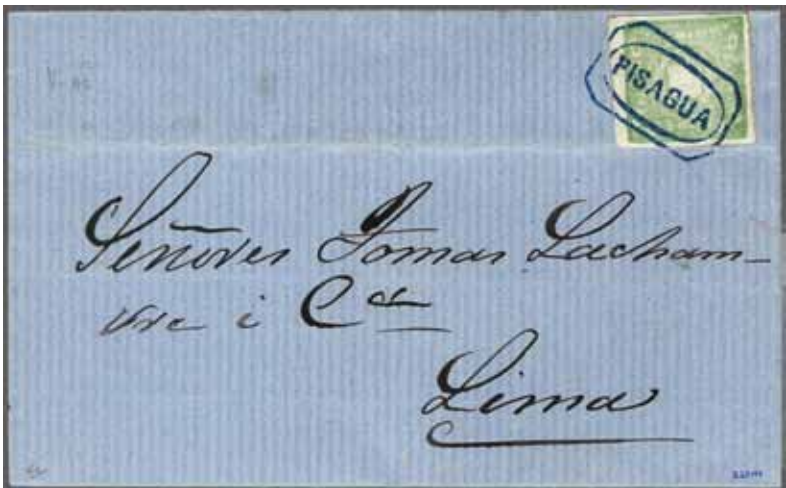 PISAGUA
Señores Tomas Lacham-
bre i Cª
Lima